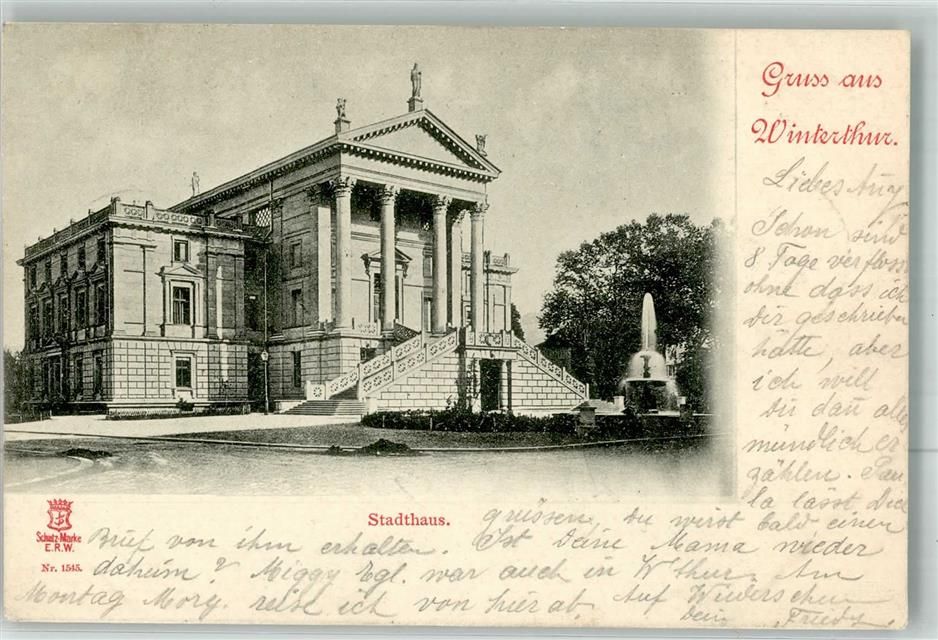 Gruss aus
Winterthur.
Liebes Augy
Schon sind
8 Tage verfloss
ohne dass ich
Dir geschrieben
hätte, aber
ich will
Dir dan alles
mündlich er
zählen. Pau
la lässt Dich
grüssen, Du wirst bald einen
Brief von ihm erhalten. Ist Deine Mama wieder
daheim? Miggy Egl. war auch in W'thur. Am
Montag Morg. reise ich von hier ab. Auf Wiedersehen
Dein Friedy
Stadthaus.
Schutz-Marke
E.R.W.
Nr. 1545.